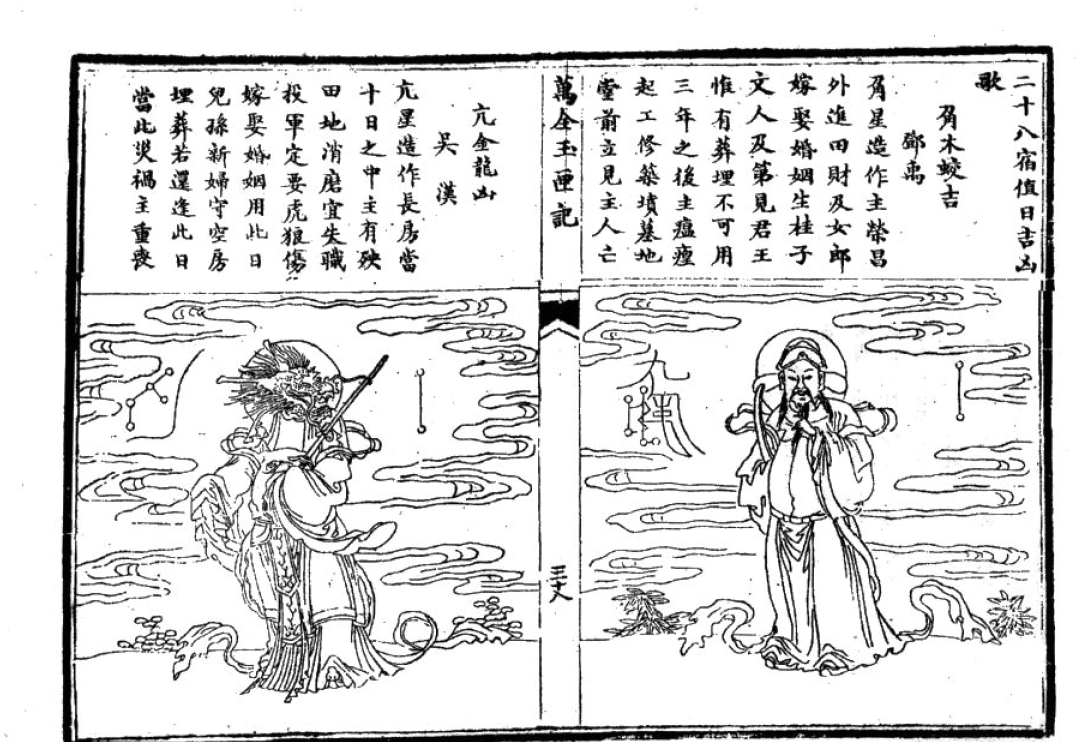 二十八宿值日吉凶
歌
角木蛟吉
鄧禹
角星造作主榮昌
外進田財及女郎
嫁娶婚姻生桂子
文人及第見君王
惟有葬埋不可用
三年之後主瘟㾮
起工修築墳墓地
堂前立見主人亡
萬全玉匣記
亢金龍凶
吳漢
亢星造作長房當
十日之中主有殃
田地消磨宜失職
投軍定要虎狼傷
嫁娶婚姻用此日
兒孫新婦守空房
埋葬若還逢此日
當此災禍主重喪